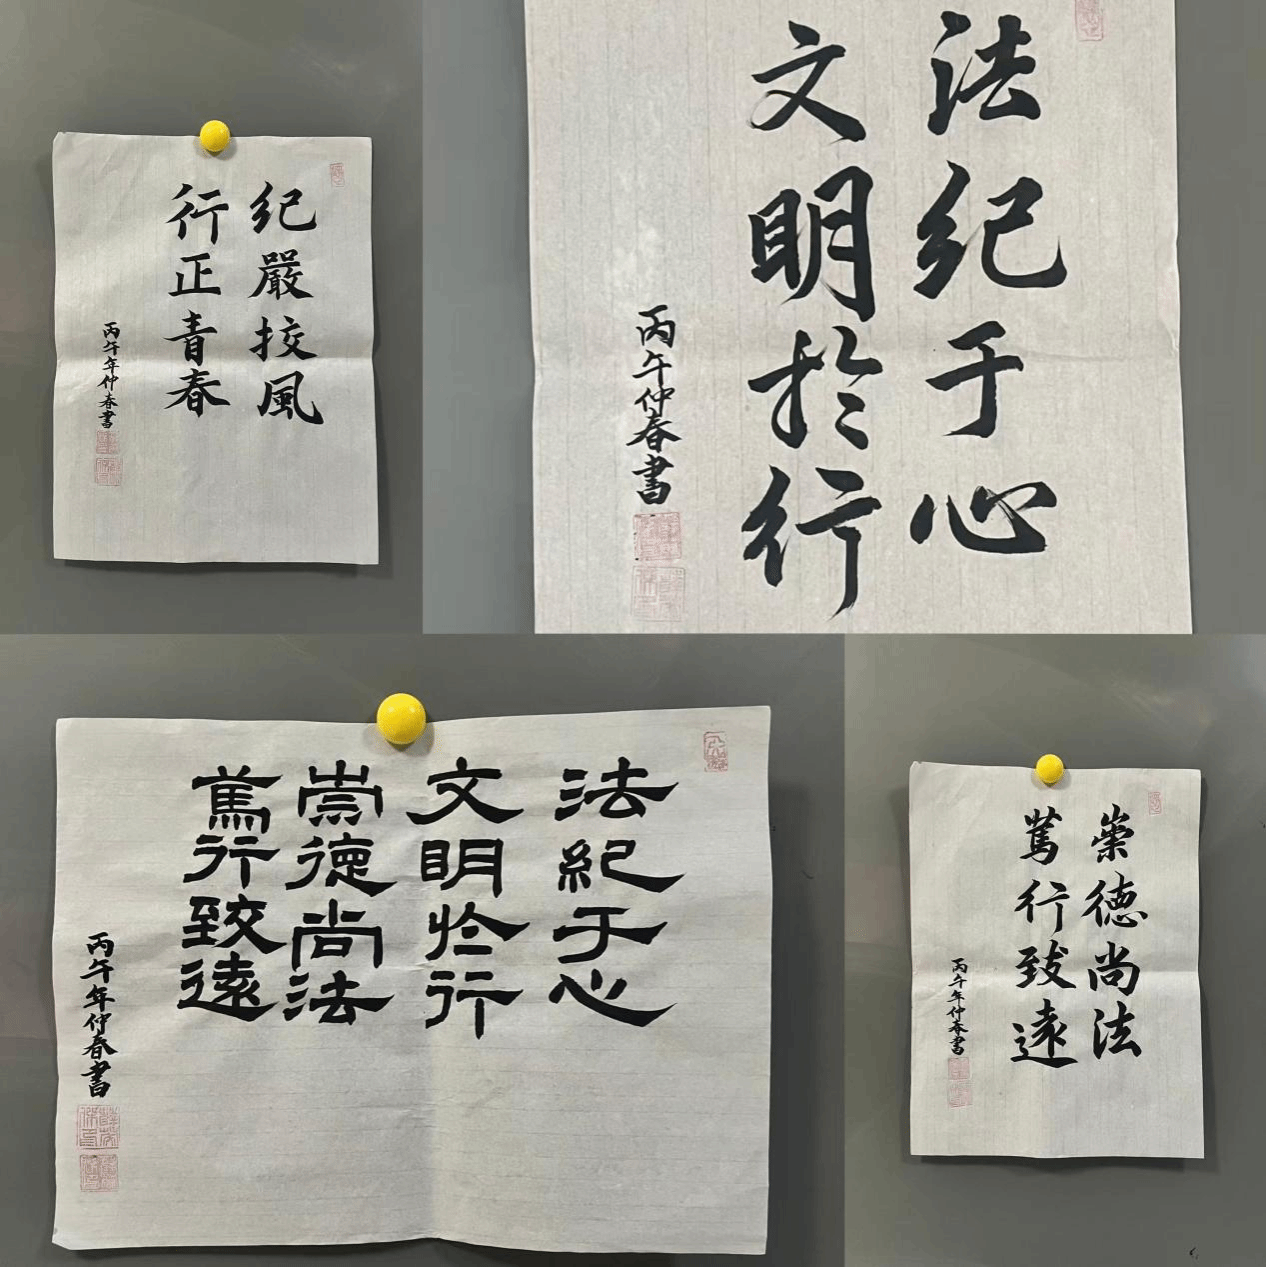 紀嚴挍風
行正青春
丙午年仲春書
法紀于心
文明於行
丙午仲春書
法紀于心
文明於行
崇德尚法
篤行致遠
丙午年仲春書
崇德尚法
篤行致遠
丙午年仲春書